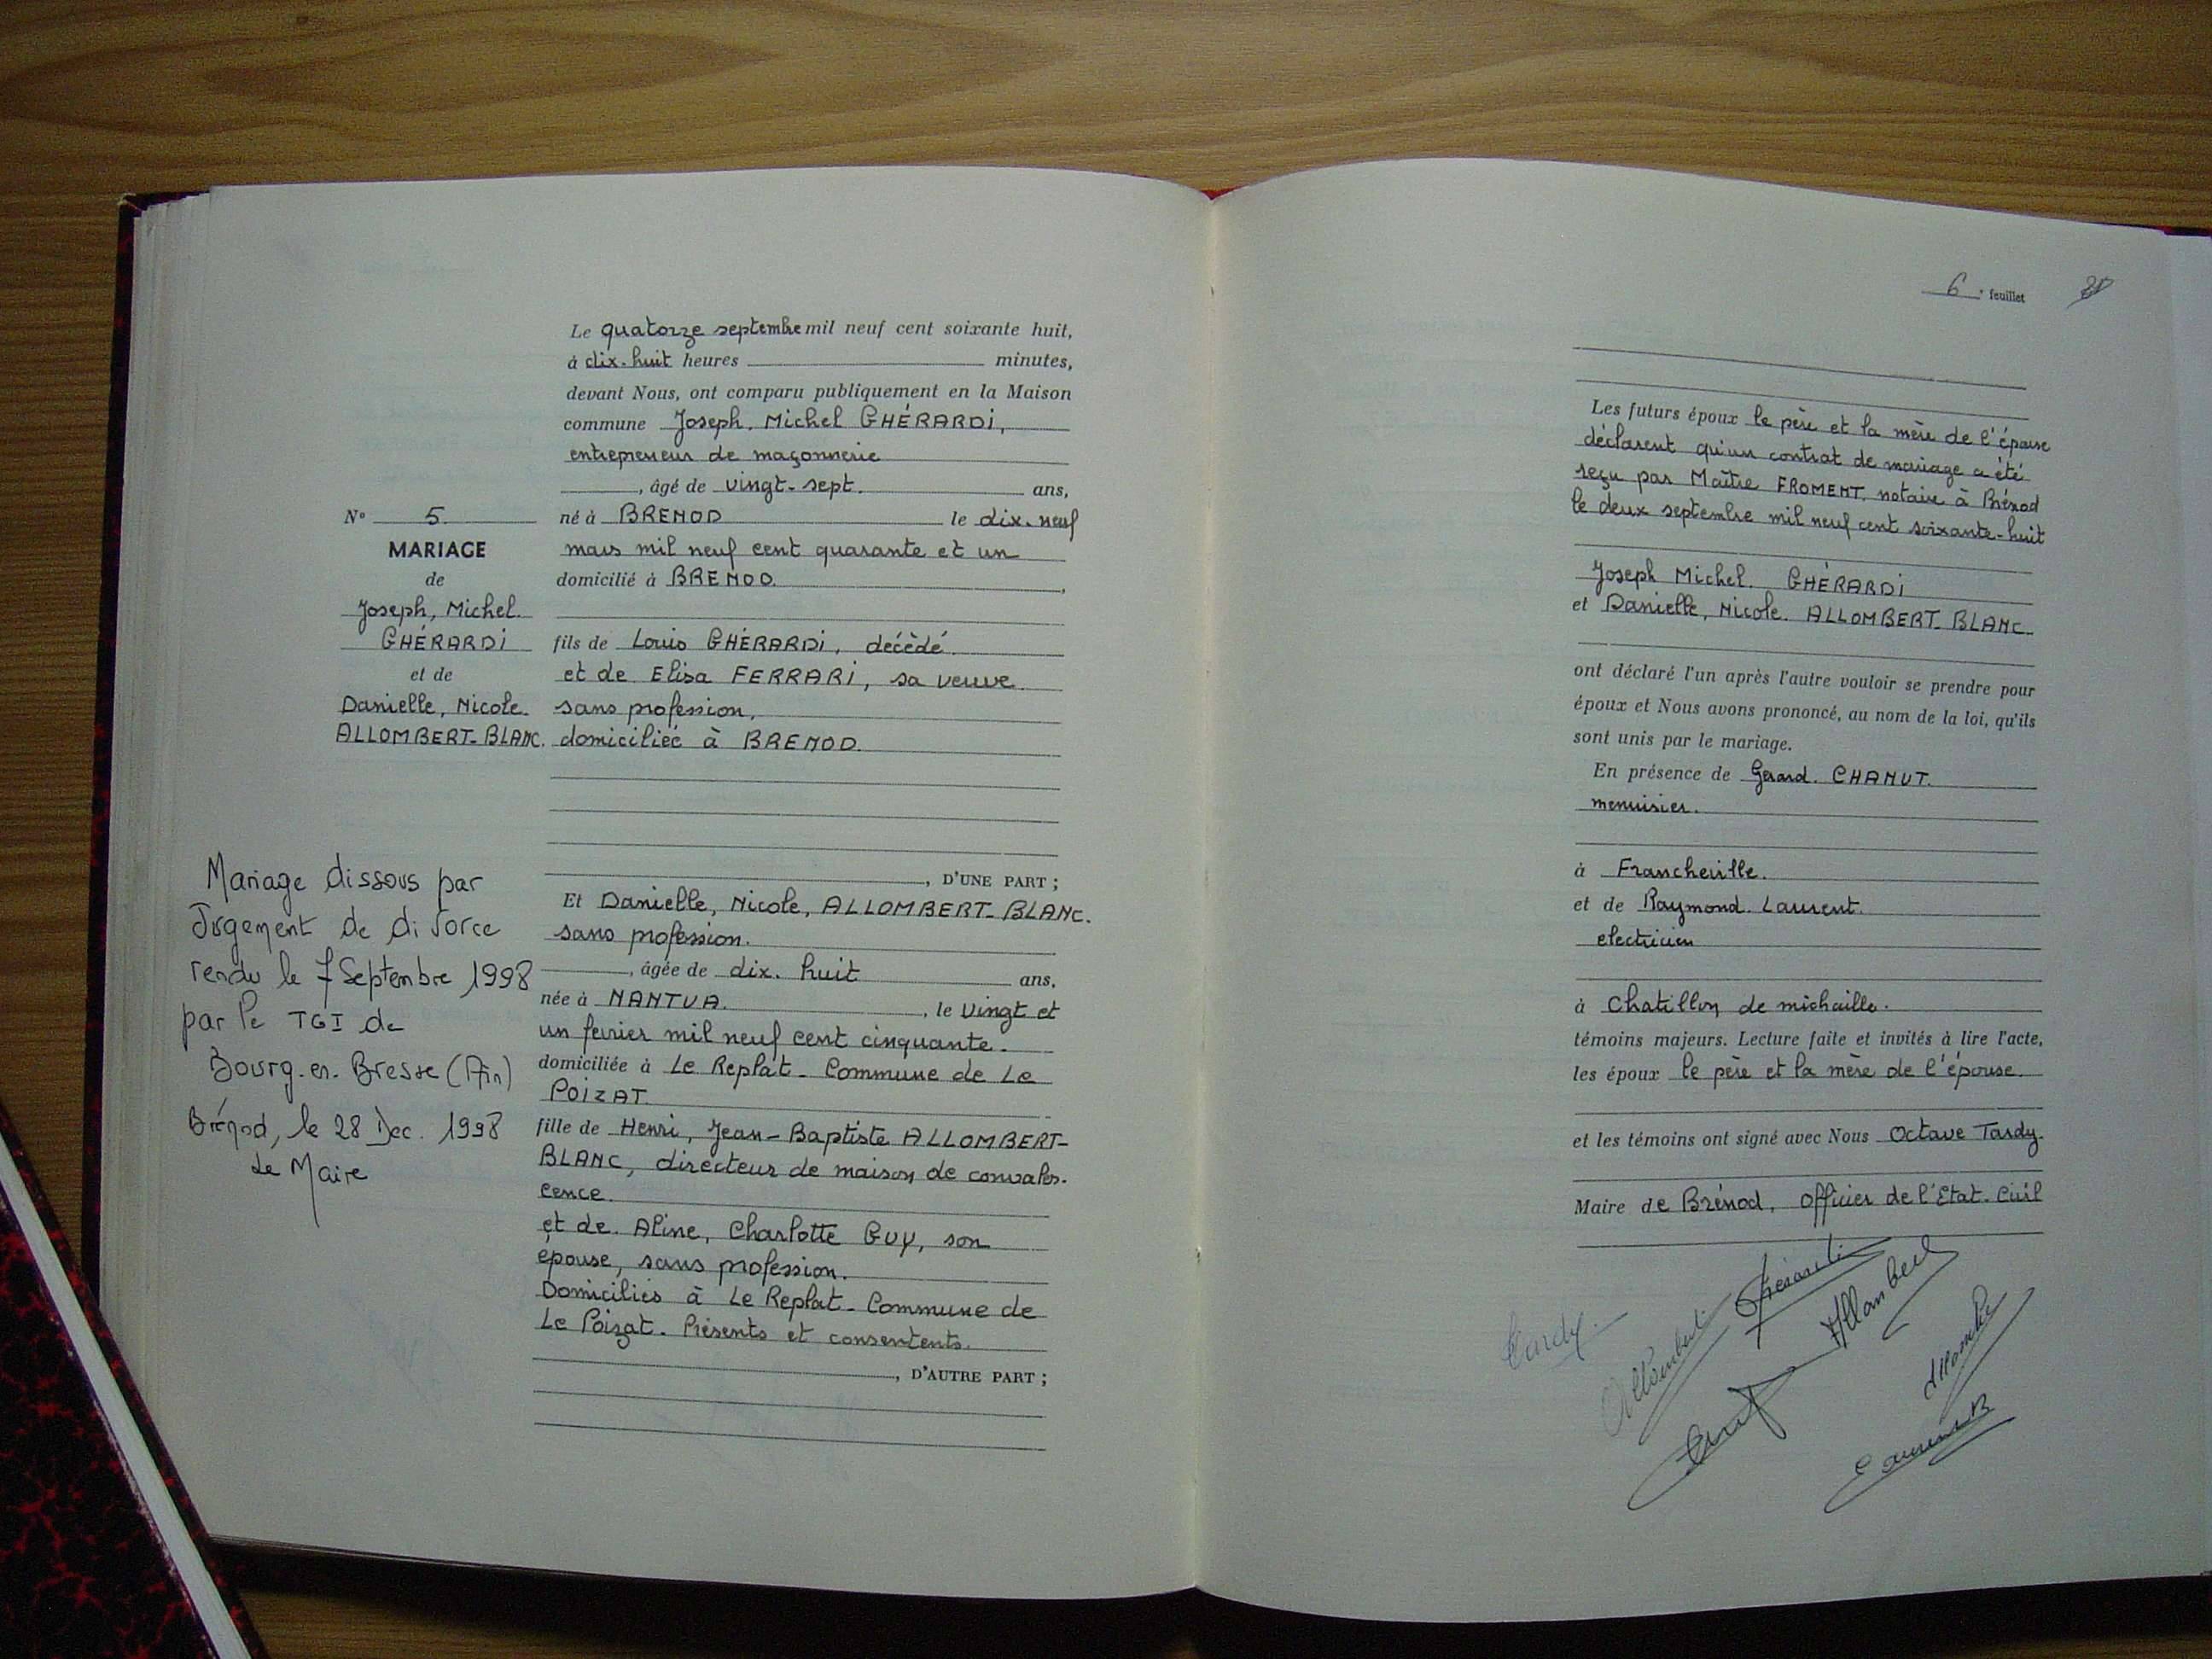 Le quatorze septembre mil neuf cent soixante huit,
à dix-huit heures minutes,
devant Nous, ont comparu publiquement en la Maison
commune Joseph, Michel GHÉRARDI,
entrepreneur de maçonnerie
, âgé de vingt-sept. ans,
né à BRENOD le dix-neuf
mars mil neuf cent quarante et un
domicilié à BRENOD.,
fils de Louis GHÉRARDI, décèdé.
et de Elisa FERRARI, sa veuve
sans profession,
domiciliéé à BRENOD.
, D'UNE PART ;
N° 5.
MARIAGE
de
Joseph, Michel.
GHÉRARDI
et de
Danielle, Nicole.
ALLOMBERT-BLANC.
Mariage dissous par
Jugement de divorce
rendu le 7 Septembre 1998
par le TGI de
Bourg-en-Bresse (Ain)
Brénod, le 28 Dec. 1998
Le Maire
Et Danielle, Nicole, ALLOMBERT-BLANC.
sans profession.
, âgée de dix-huit ans,
née à NANTUA., le vingt et
un fevrier mil neuf cent cinquante.
domiciliée à Le Replat - Commune de Le
POIZAT.
fille de Henri, Jean-Baptiste ALLOMBERT-
BLANC, directeur de maison de convales-
cence.
et de Aline, Charlotte GUY, son
épouse, sans profession.
Domiciliés à Le Replat - Commune de
Le Poizat. Présents et consentents.
, D'AUTRE PART ;
6 e feuillet
Les futurs époux le père et la mère de l'épouse
déclarent qu'un contrat de mariage a été
reçu par Maître FROMENT, notaire à Brénod
le deux septembre mil neuf cent soixante-huit
Joseph Michel. GHÉRARDI
et Danielle, Nicole. ALLOMBERT-BLANC.
ont déclaré l'un après l'autre vouloir se prendre pour
époux et Nous avons prononcé, au nom de la loi, qu'ils
sont unis par le mariage.
En présence de Gerard. CHANUT.
menuisier.
à Francheville.
et de Raymond. Laurent.
electricien
à Chatillon de michaille.
témoins majeurs. Lecture faite et invités à lire l'acte,
les époux le père et la mère de l'épouse.
et les témoins ont signé avec Nous Octave Tardy.
Maire de Brénod, Officier de l'Etat-Civil
Tardy
Allombert
Gherardi
Allombert